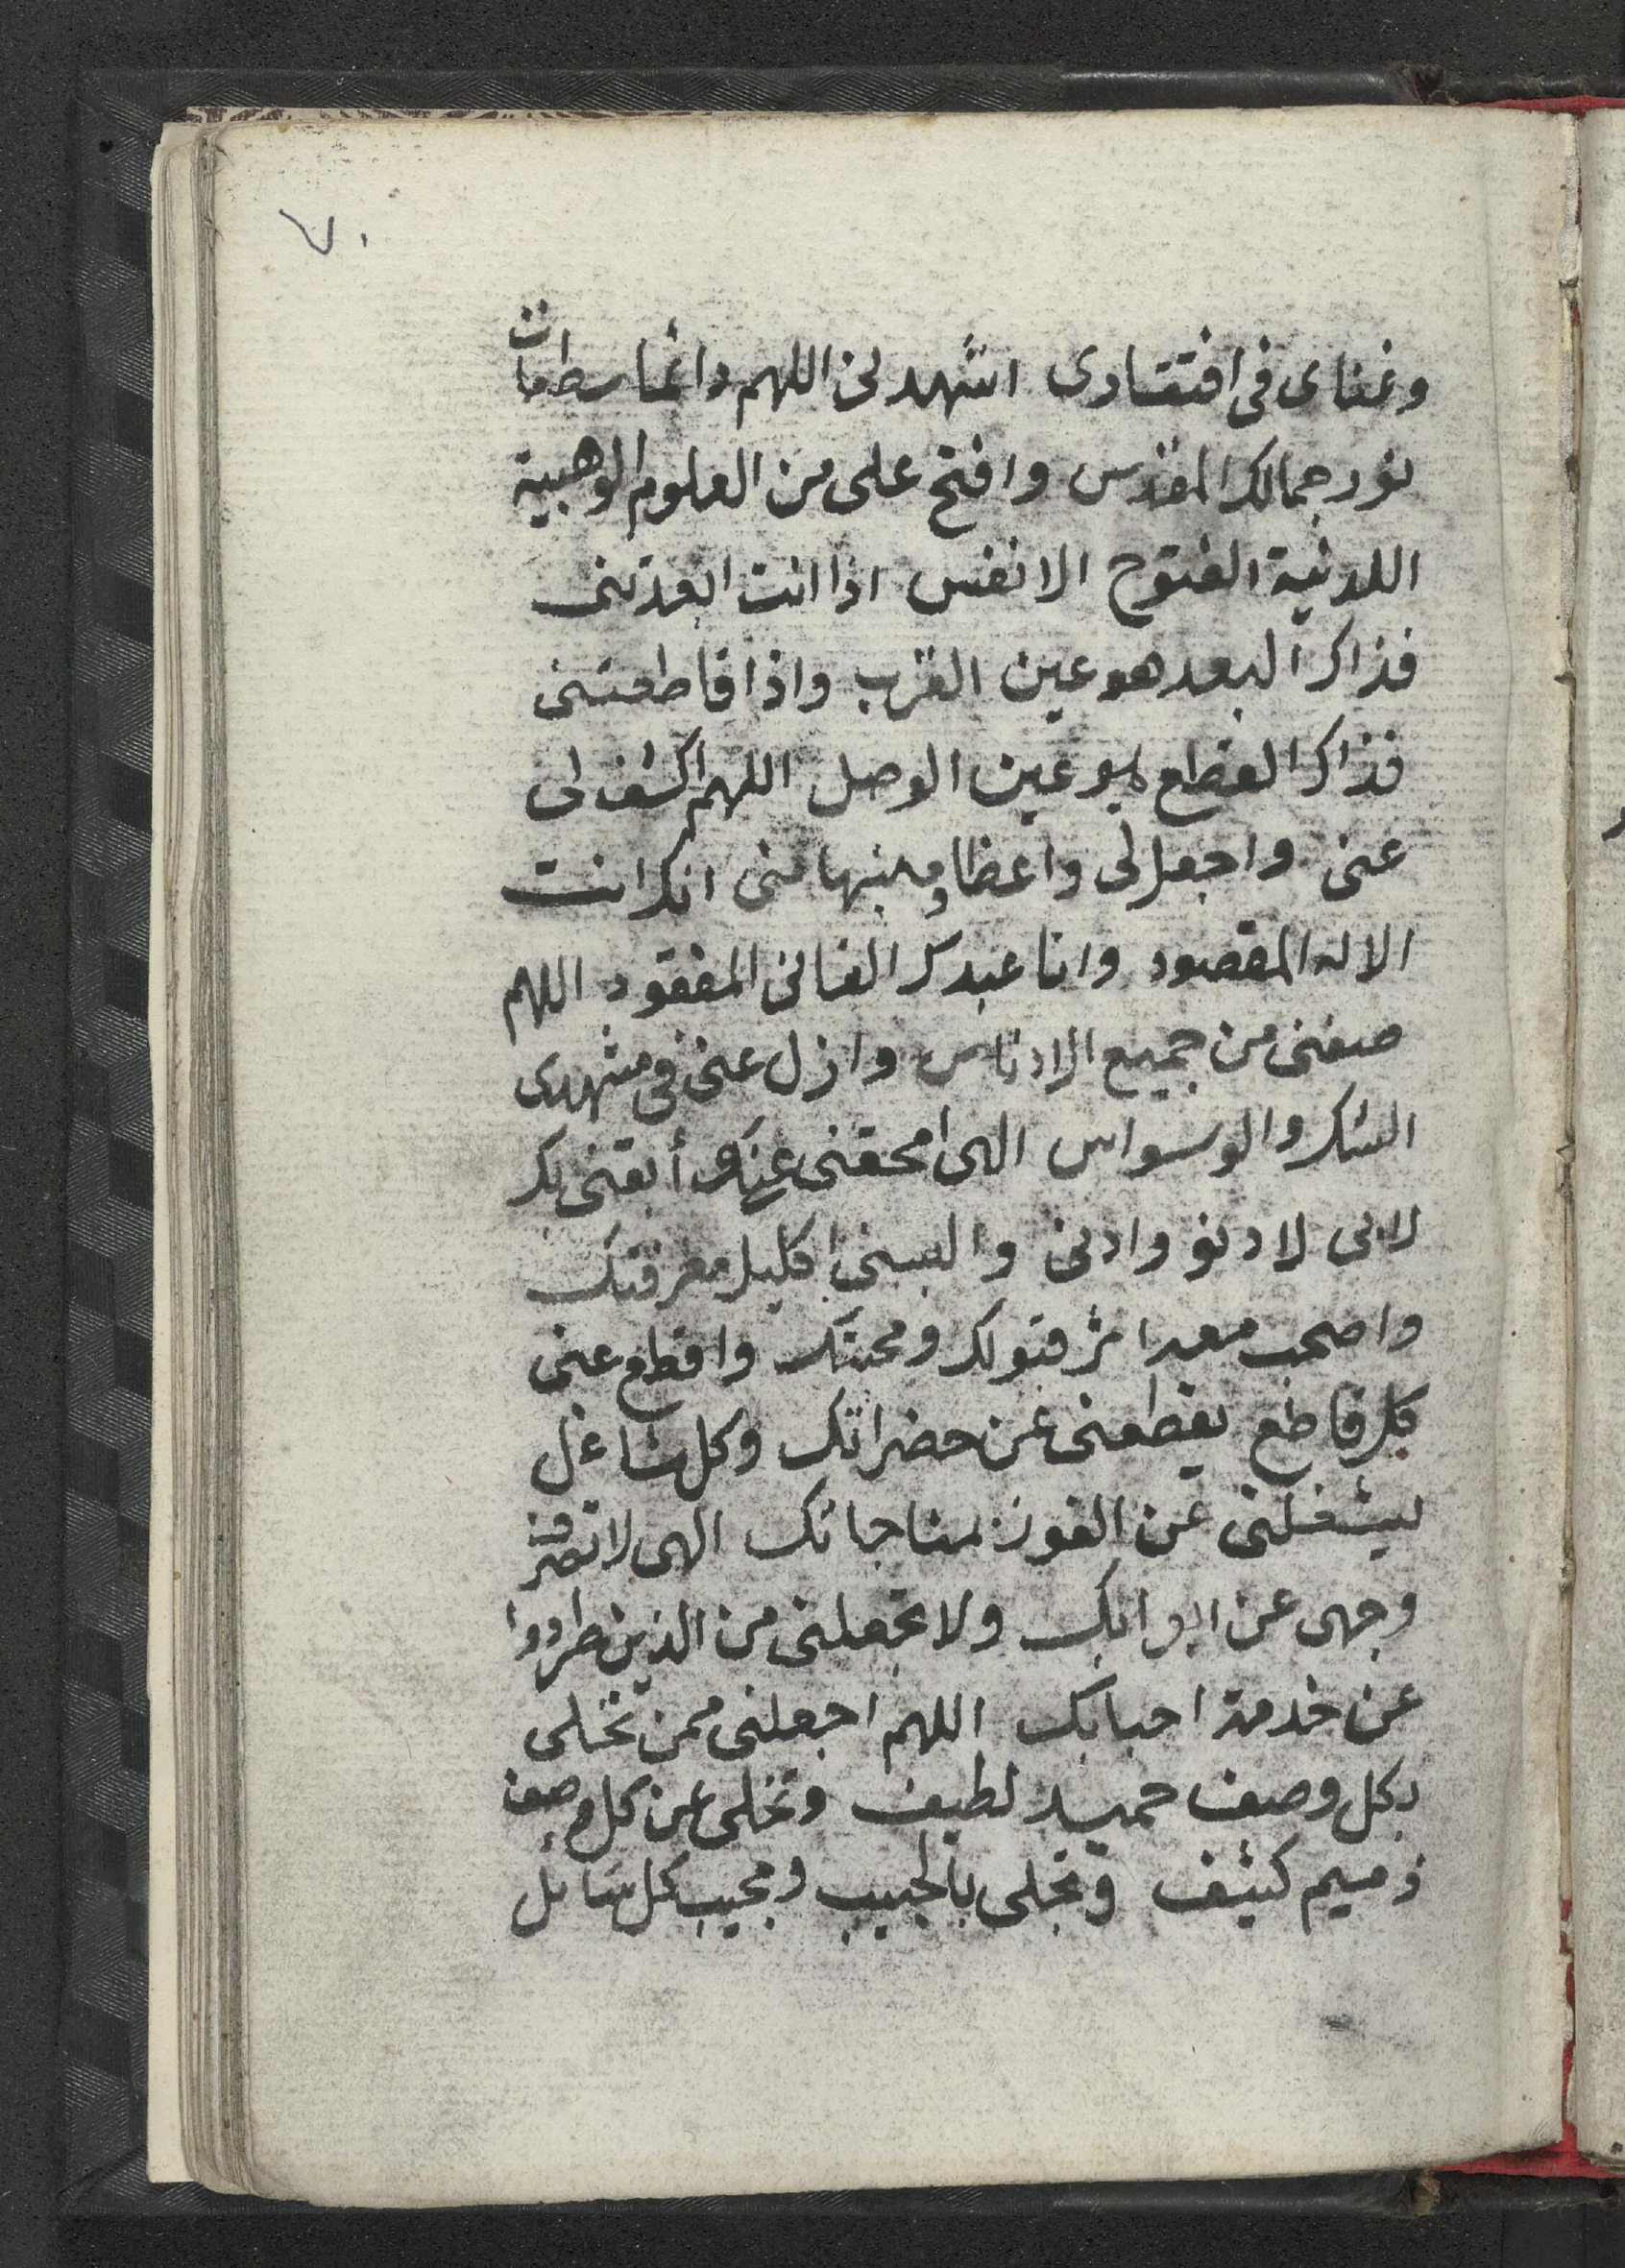 ٧٠
وغناى فى افتقارى اشهدنى اللهم دائما سطعات
نور جمالك المقدس وافتح على من العلوم الوهبية
اللدنية الفتوح الانفس اذا انت ابعدتنى
فذاك البعد هو عين القرب واذا قاطعتنى
فذاك القطع هو عين الوصل اللهم اكشف لى
عنى واجعل لى واعظا ومنبها منى انك انت
الاله المقصود وانا عبدك الفانى المفقود اللهم
صفنى من جميع الادناس وازل عنى فى مشهدى
الشك والوسواس الهى امحقنى عنك وأبقنى بك
لا بى لادنو وادنى والبسنى اكليل معرفتك
واصحب معه اثر قبولك ومحبتك واقطع عنى
كل قاطع يقطعنى عن حضراتك وكل شاغل
يشغلنى عن الفوز بمناجاتك الهى لا تصرف
وجهى عن ابوابك ولا تجعلنى من الذين طردوا
عن خدمة احبابك اللهم اجعلنى ممن تحلى
بكل وصف حميد لطيف وتخلى عن كل وصف
ذميم كثيف وتجلى بالحبيب ومجيب كل سائل